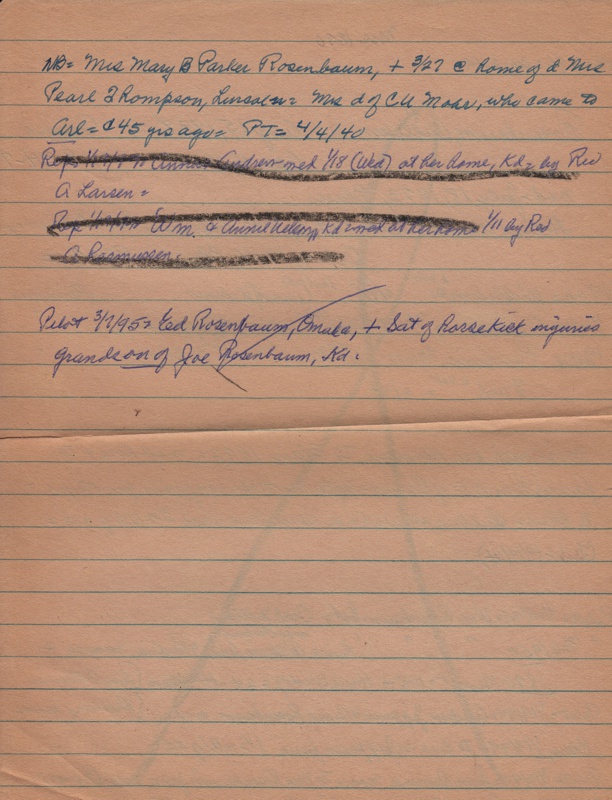 NB= Mrs Mary B Parker Rosenbaum, + 3/27 @ home of d Mrs
Pearl Thompson, Lincoln= Mrs d of CH Moar, who came to
Arl= c45 yrs ago= PT= 4/4/40
med 1/18 (Wed) at her home, Kd= by Rev
A Larsen=
Wm. & Annie Kd= med at her home 1/11 by Rev
A Rasmussen.
Pilot 3/7/95= Ed Rosenbaum, Omaha, + Sat of horsekick injuries
grandson of Joe Rosenbaum, Kd.